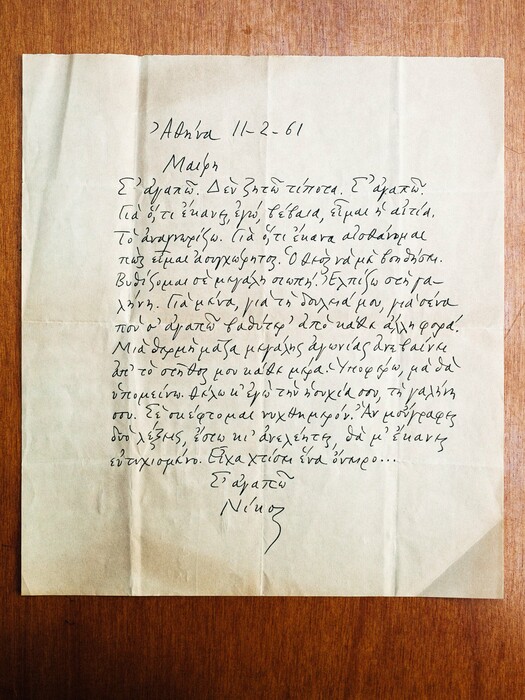 Ἀθήνα 11-2-61
Μαίρη
Σ' ἀγαπῶ. Δὲν ζητῶ τίποτα. Σ' ἀγαπῶ.
Γιὰ ὅ,τι ἔκανες, ἐγώ, βέβαια, εἶμαι ἡ αἰτία.
Τὸ ἀναγνωρίζω. Γιὰ ὅ,τι ἔκανα αἰσθάνομαι
πὼς εἶμαι ἀσυγχώρητος. Ὁ Θεὸς νὰ μὲ βοηθήσει.
Βυθίζομαι σὲ μεγάλη σιωπή. Ἐλπίζω στὴ γα-
λήνη. Γιὰ μένα, γιὰ τὴ δουλειά μου, γιὰ σένα
ποὺ σ' ἀγαπῶ βαθύτερ' ἀπὸ κάθε ἄλλη φορά.
Μιὰ θερμὴ μάζα μεγάλης ἀγωνίας ἀνεβαίνει
ἀπ' τὸ στῆθος μου κάθε μέρα. Ὑποφέρω, μὰ θὰ
ὑπομείνω. Θέλω κ' ἐγὼ τὴν ἡσυχία σου, τὴ γαλήνη
σου. Σὲ σκέφτομαι νυχθημερόν. Ἂν μοὔγραφες
δυὸ λέξεις, ἔστω κι' ἀνελέητες, θὰ μ' ἔκανες
εὐτυχισμένο. Εἶχα χτίσει ἕνα ὄνειρο...
Σ' ἀγαπῶ
Νίκος